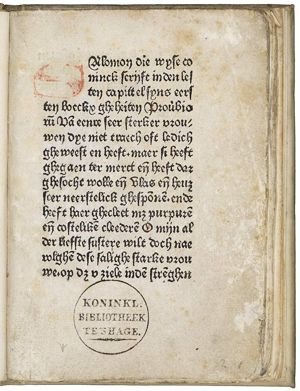 Alomon die wyse co
ninck scrijft in den les
ten capittel syns eers
ten boeckx gheheten Proūbio
rū Vā eenre seer sterker vrou
wen dye niet traech oft ledich
gheweest en heeft. maer si heeft
ghegaen ter merct eñ heeft dar
ghesocht wolle eñ vlas eñ heuz
seer neerstelick ghesponē. ende
heeft haer ghecleet mz purpurē
eñ costeliken cleederē O mijn al
der liefste sustere wilt doch nae
volghē dese salighe starke vrou
we. op dz v ziele indē strēghen
KONINKL:
BIBLIOTHEEK
TE 'S HAGE.